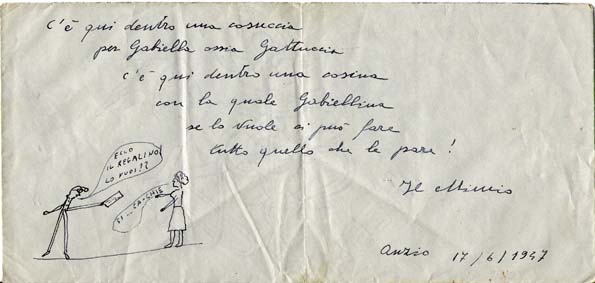 C'è qui dentro una cosuccia
per Gabiella ossia Gattuccia
c'è qui dentro una cosina
con la quale Gabiellina
se lo vuole ci può fare
tutto quello che le pare!
Il Mimmo
Anzio 17/6/1947
ECCO
IL REGALINO
LO VUOI??
SI...